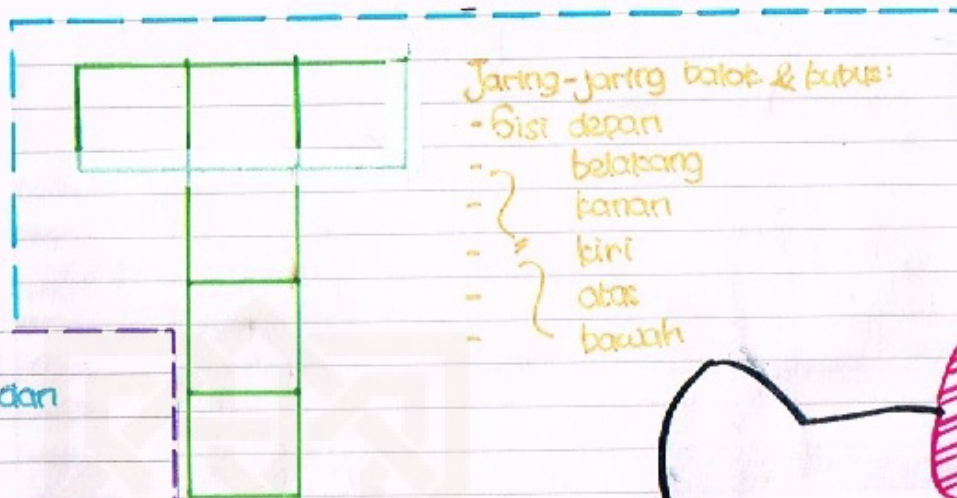 Jaring-jaring balok & kubus:
- Sisi depan
- belakang
- kanan
- " kiri
- atas
- bawah
dan